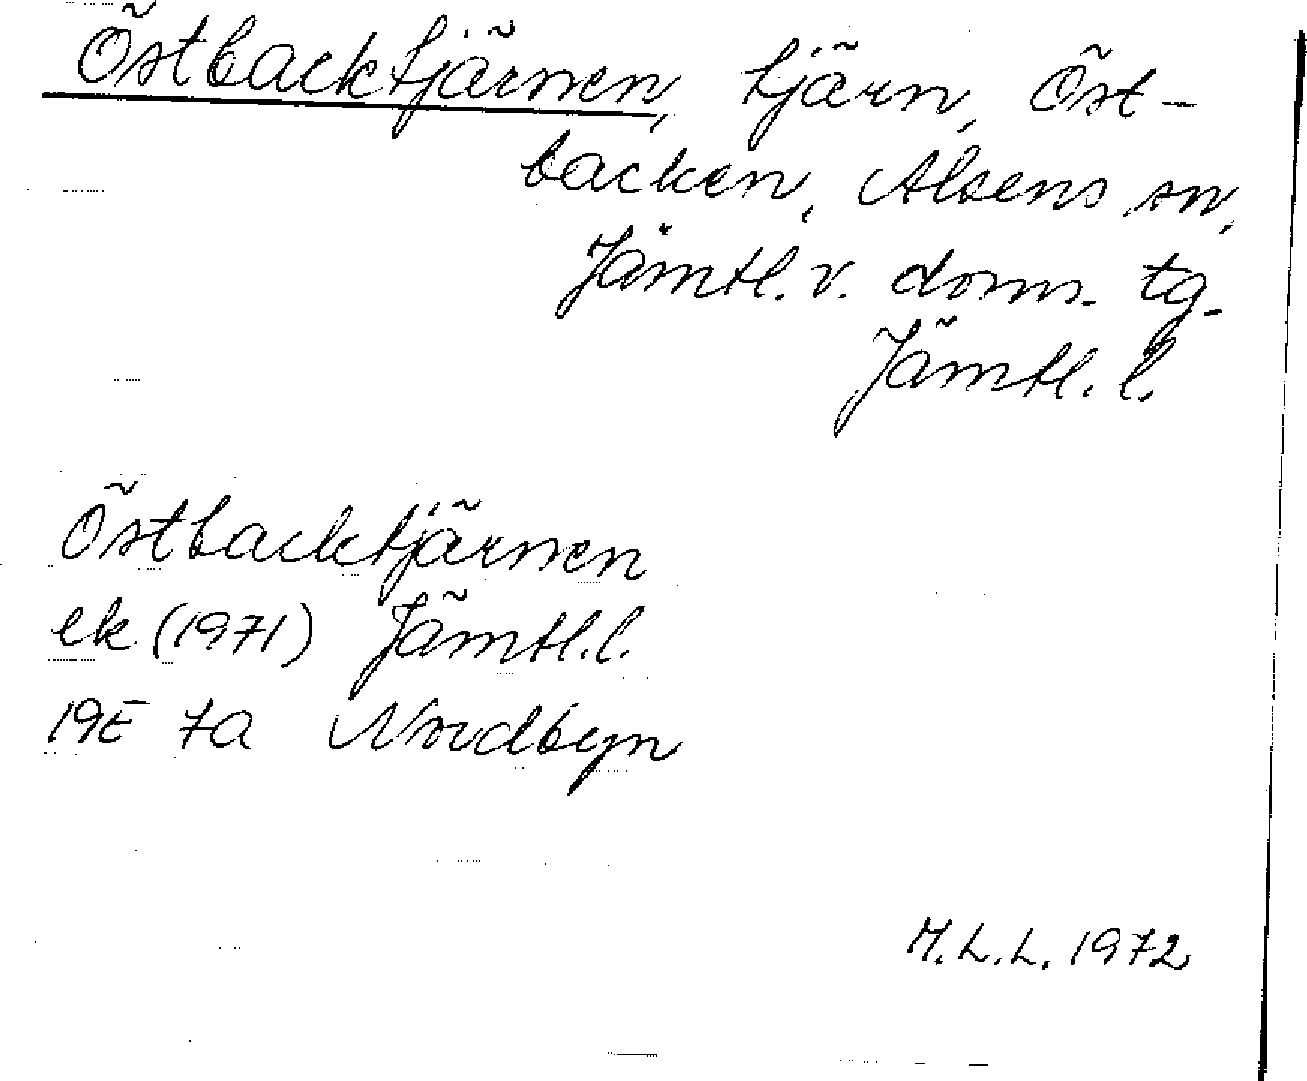 Östbacktjärnen, tjärn, Öst-
backen, Alsens sn,
Jämtl. v. doms. tg.
Jämtl. l.
Östbacktjärnen
ek (1971) Jämtl. l.
19E 7a Nordbyn
M.L.L. 1972